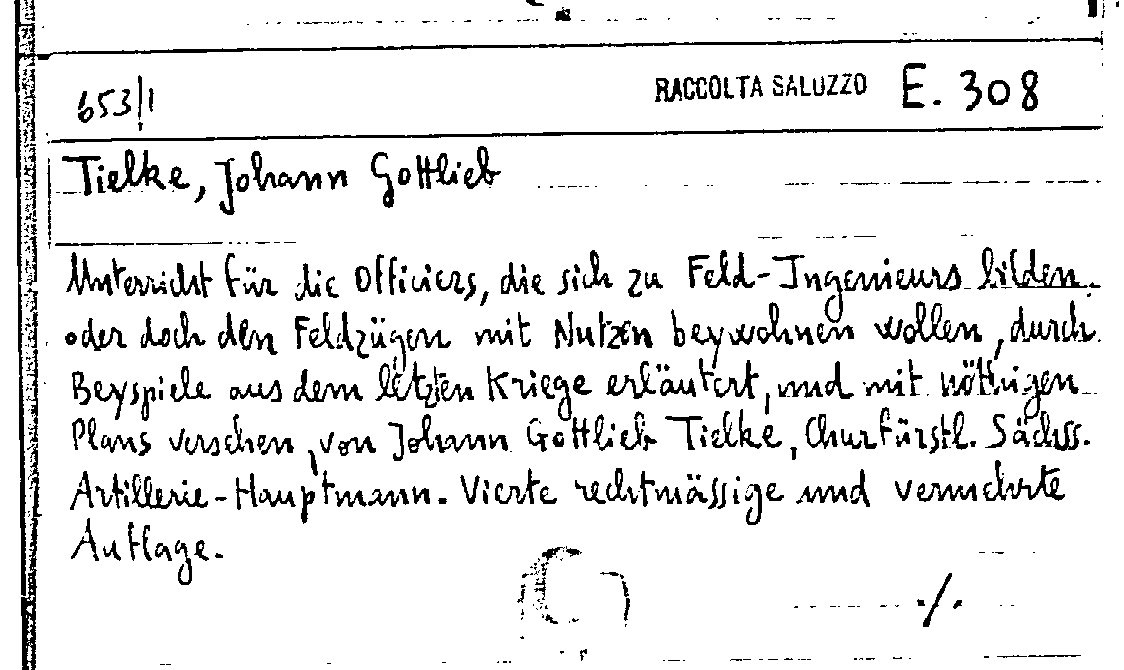 653/1 RACCOLTA SALUZZO E. 308
Tielke, Johann Gottlieb
Unterricht für die Officiers, die sich zu Feld-Ingenieurs bilden.
oder doch den Feldzügen mit Nutzen beywohnen wollen, durch
Beyspiele aus dem letzten Kriege erläutert, und mit nöthigen
Plans versehen, von Johann Gottlieb Tielke, Churfürstl. Sächss.
Artillerie-Hauptmann. Vierte rechtmässige und vermehrte
Auflage.
./.